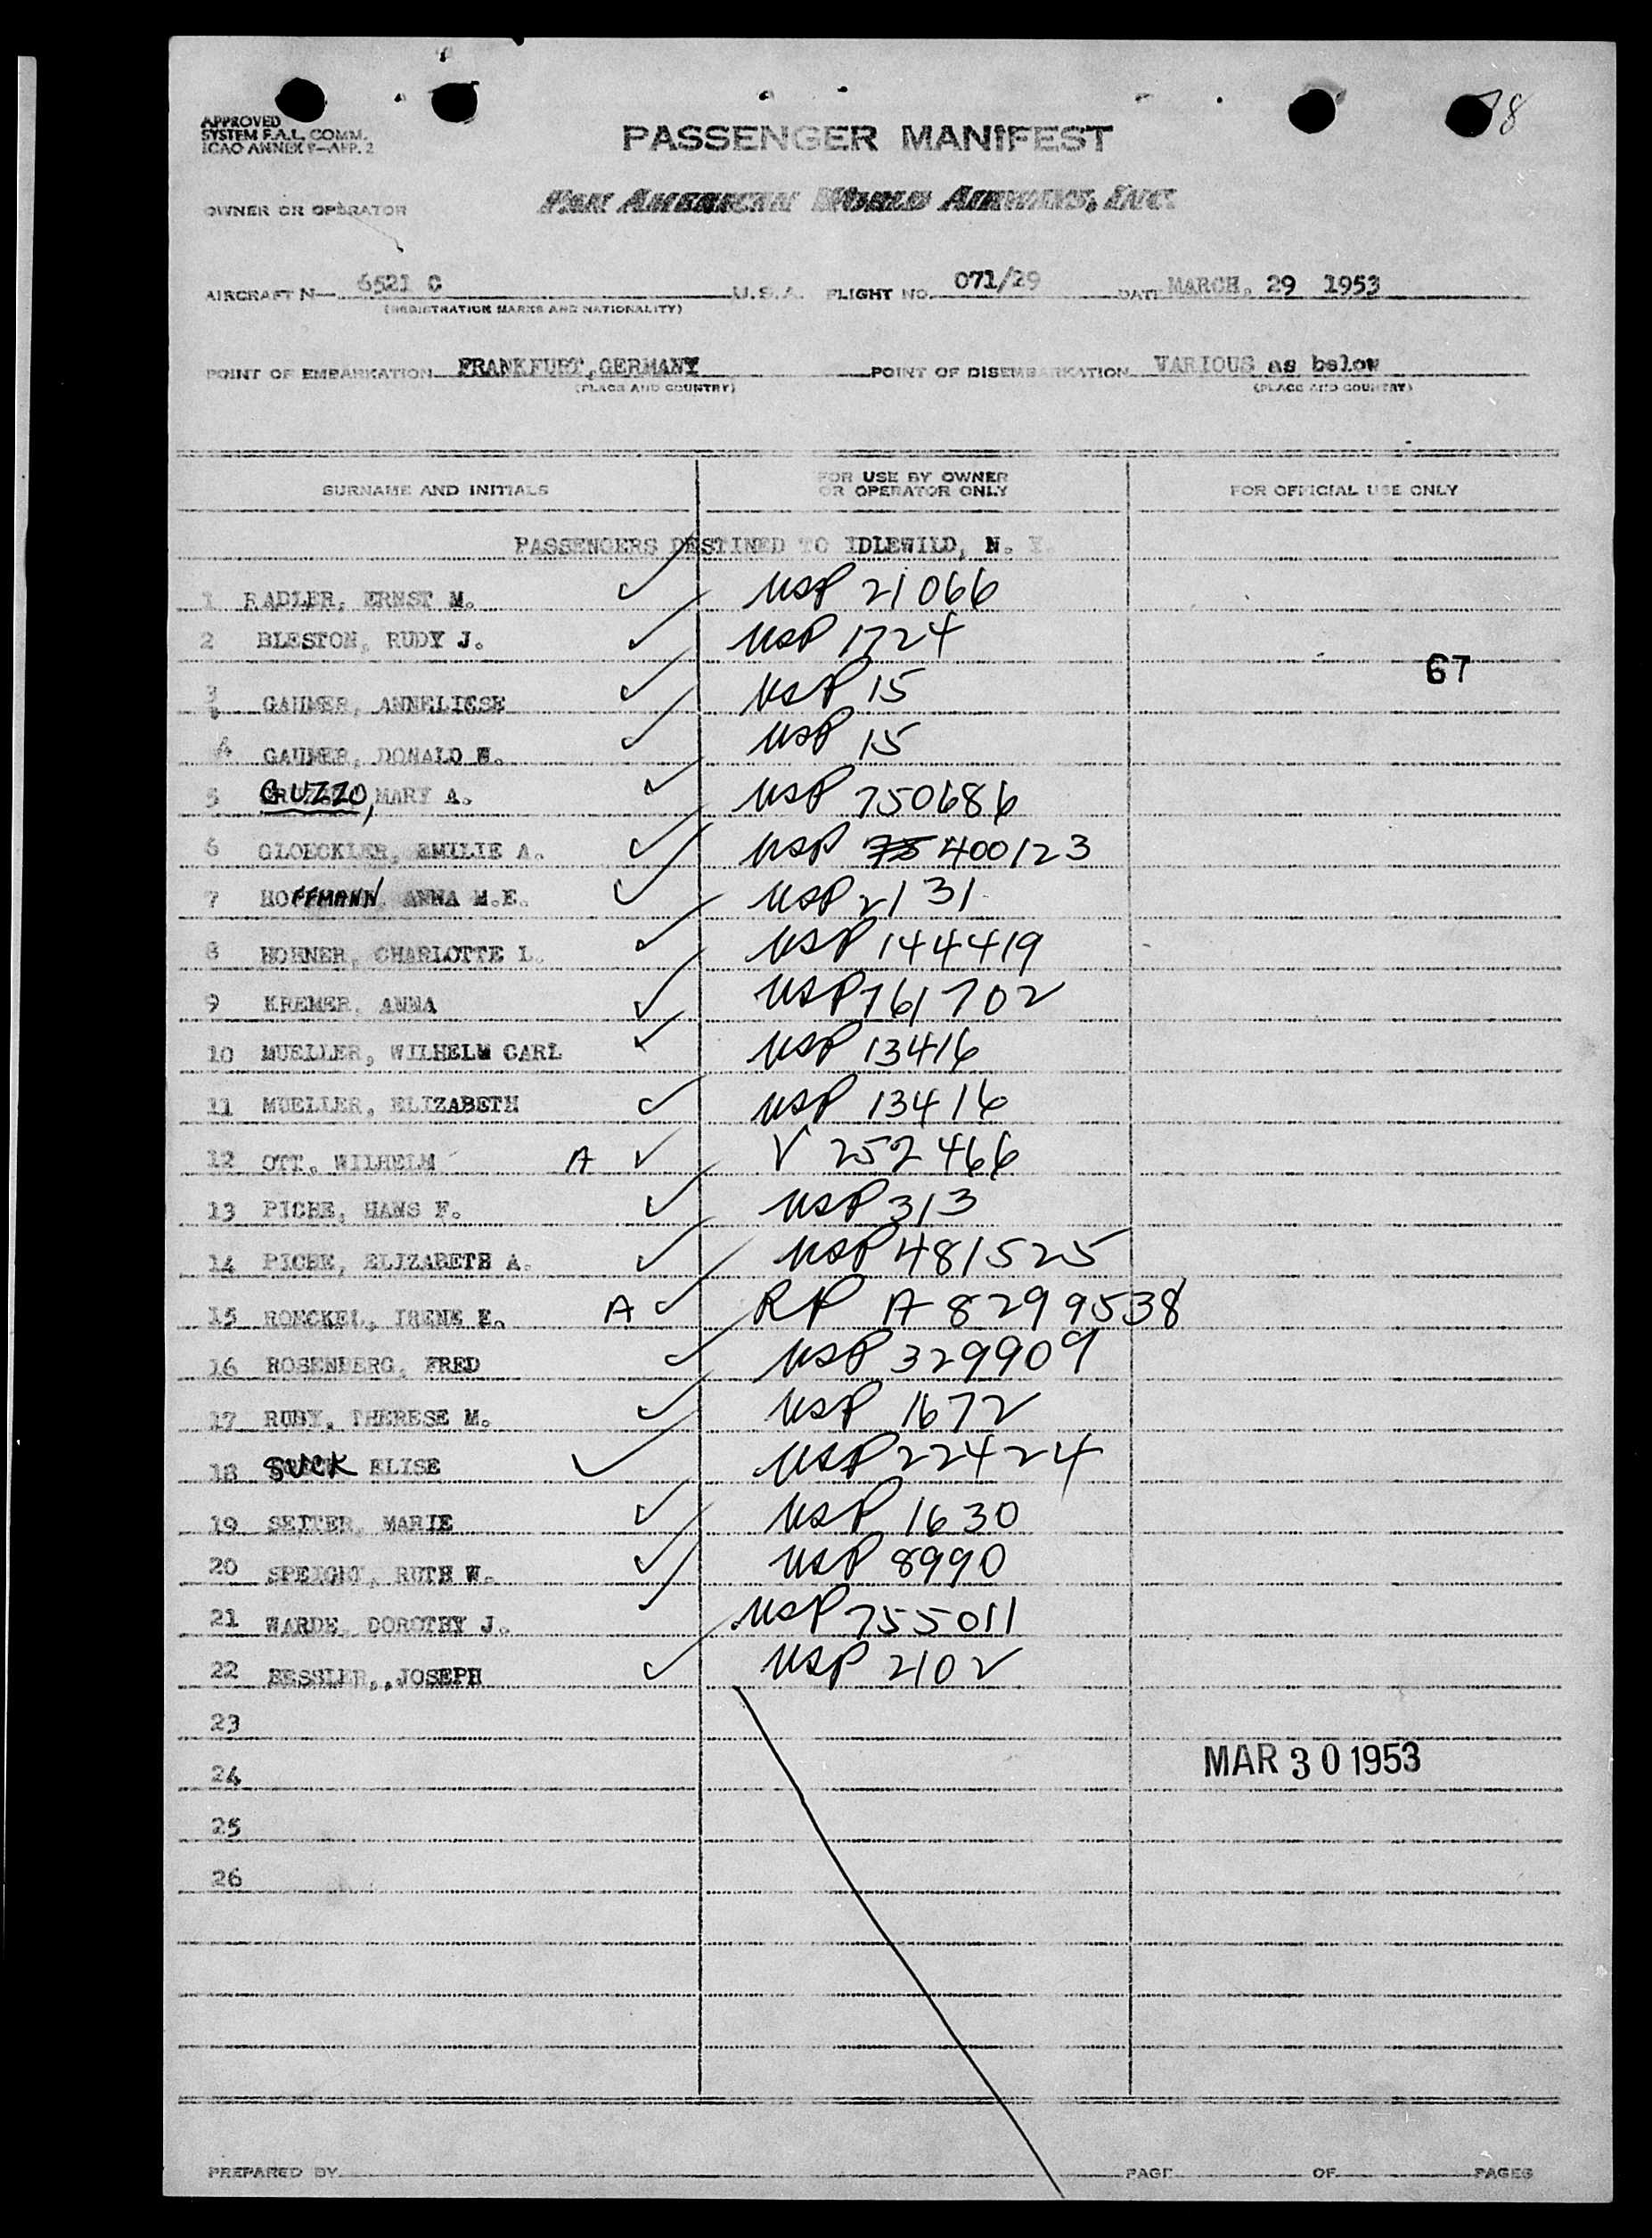 78
APPROVED
SYSTEM F.A.L. COMM.
ICAO ANNEX 9—APP. 2
PASSENGER MANIFEST
OWNER OR OPERATOR PAN AMERICAN WORLD AIRWAYS, INC.
AIRCRAFT N— 6521 C U.S.A. FLIGHT NO. 071/29 DATE MARCH. 29 1953
(REGISTRATION MARKS AND NATIONALITY)
POINT OF EMBARKATION FRANKFURT, GERMANY POINT OF DISEMBARKATION VARIOUS as below
(PLACE AND COUNTRY) (PLACE AND COUNTRY)
SURNAME AND INITIALS FOR USE BY OWNER OR OPERATOR ONLY FOR OFFICIAL USE ONLY
PASSENGERS DESTINED TO IDLEWILD, N. Y.
1 RADLER, ERNST M. ✓ USP 21066
2 BLESTON, RUDY J. ✓ USP 1724
67
3 GAUMER, ANNELIESE ✓ USP 15
4 GAUMER, DONALD W. ✓ USP 15
5 GUZZO, MARY A. ✓ USP 750686
6 GLOECKLER, EMILIE A. ✓ USP 75 400123
7 HOFFMANN, ANNA M.E. ✓ USP 2131
8 HOHNER, CHARLOTTE L. ✓ USP 144419
9 KREMER, ANNA ✓ USP 761702
10 MUELLER, WILHELM CARL ✓ USP 13416
11 MUELLER, ELIZABETH ✓ USP 13416
12 OTT, WILHELM A ✓ V 252466
13 PICHE, HANS F. ✓ USP 313
14 PICHE, ELIZABETH A. ✓ USP 481525
15 ROECKEL, IRENE E. A ✓ RP A-8299538
16 ROSENBERG, FRED ✓ USP 329909
17 RUBY, THERESE M. ✓ USP 1672
18 SUCK ELISE ✓ USP 22424
19 SEITER, MARIE ✓ USP 1630
20 SPEIGHT, RUTH W. ✓ USP 8990
21 WARDE, DOROTHY J. ✓ USP 755011
22 BESSLER,,JOSEPH ✓ USP 2102
23
MAR 30 1953
24
25
26
PREPARED BY PAGE OF PAGES